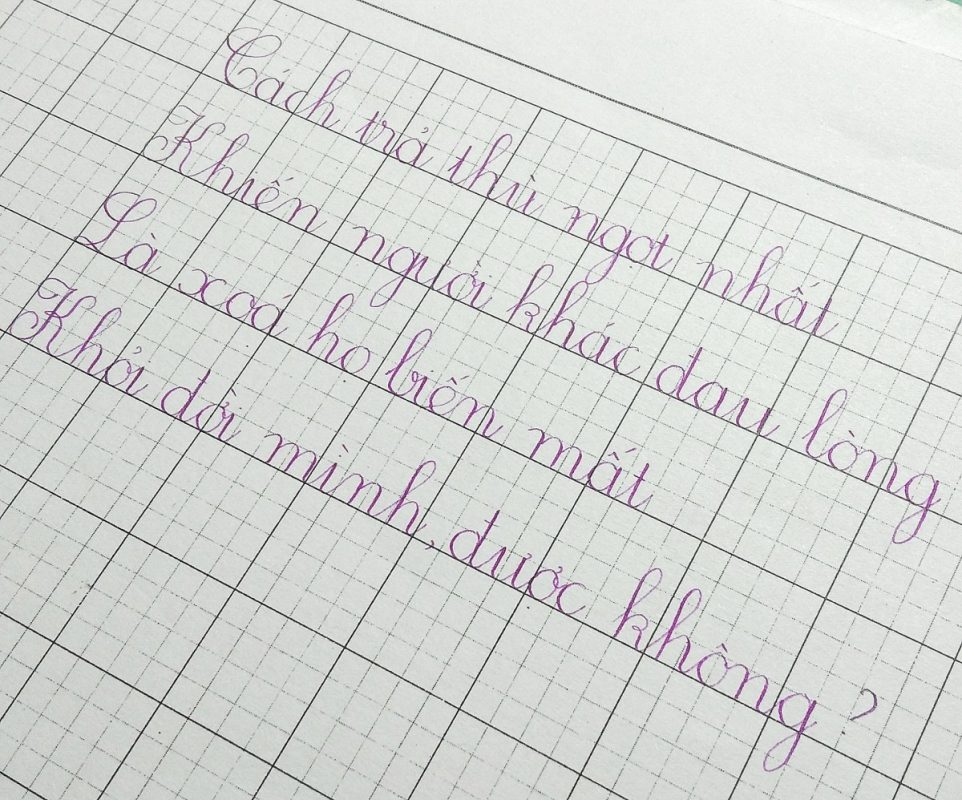 Cách trả thù ngọt nhất
Khiến người khác đau lòng
Là xoá họ biến mất
Khỏi đời mình, được không?